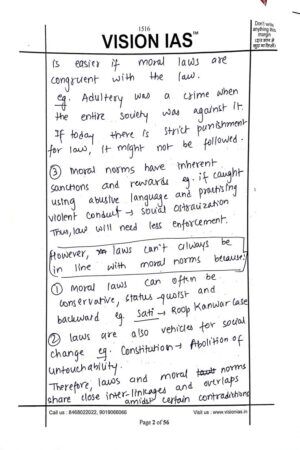 1516
VISION IAS™
Don't write
anything this
margin
is easier if moral laws are
congruent with the law.
eg. Adultery was a crime when
the entire society was against it.
If today there is strict punishment
for law, it might not be followed.
③ Moral norms have inherent
sanctions and rewards eg. if caught
using abusive language and practising
violent conduct → social ostracization
Thus, law will need less enforcement.
However, laws can't always be
in line with moral norms because:
① Moral laws can often be
conservative, status-quoist and
backward eg. Sati → Roop Kanwar case
② laws are also vehicles for social
change eg. Constitution → Abolition of
untouchability.
Therefore, laws and moral norms
share close inter-linkages and overlaps
amidst certain contradictions
Call us : 8468022022, 9019066066
Visit us : www.visionias.in
Page 2 of 56